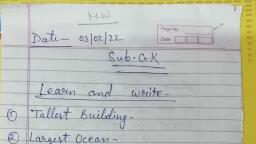 H.W
Page No.
Date
Date - 03/02/22
Sub-G.K
Learn and write -
① Tallest Building -
② Largest Ocean -